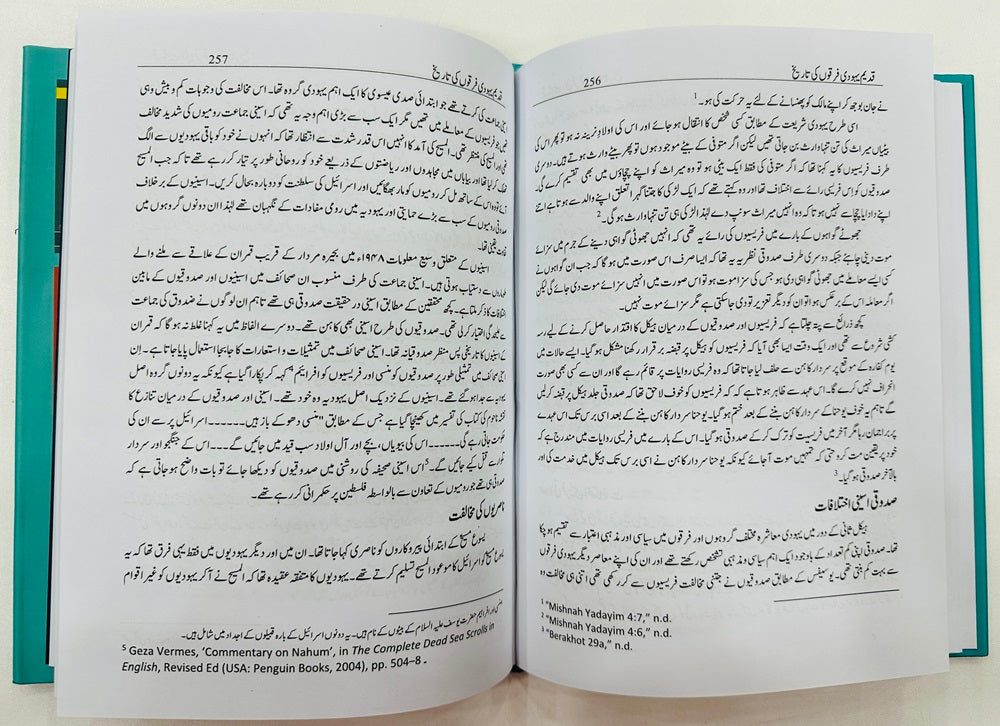 256 قدیم یہودی فرقوں کی تاریخ
نے جان بوجھ کر اپنے مالک کو پھنسانے کے لئے یہ حرکت کی ہو۔1
اسی طرح یہودی شریعت کے مطابق کسی شخص کا انتقال ہو جائے اور اس کی اولاد نرینہ نہ ہو تو پھر اس کی
بیٹیاں میراث کی تن تنہا وارث بن جاتی تھیں لیکن اگر متوفی کے بیٹے موجود ہوں تو پھر بیٹے وارث ہوتے ہیں۔ دوسری
طرف فریسیوں کا یہ کہنا تھا کہ اگر متوفی کی فقط ایک بیٹی ہو تو وہ میراث کو اپنے چچاؤں میں بھی تقسیم کرے گی۔
صدوقیوں کو اس فریسی رائے سے اختلاف تھا اور وہ کہتے تھے کہ ایک لڑکی کا جتنا گہرا تعلق اپنے والد سے ہوتا ہے اتنے
اپنے دادا یا چچا سے نہیں ہوتا کہ وہ انہیں میراث سونپ دے لہٰذا لڑکی ہی تن تنہا وارث ہوگی۔2
جھوٹے گواہوں کے بارے میں فریسیوں کی رائے یہ تھی کہ انہیں جھوٹی گواہی دینے کے جرم میں سزائے
موت دینی چاہئے جبکہ دوسری طرف صدوقی نظریہ یہ تھا کہ ایسا صرف اس صورت میں ہو گا کہ جب ان گواہوں نے
کسی ایسے معاملے میں جھوٹی گواہی دی ہو جس کی سزا موت ہو تو اس صورت میں انہیں سزائے موت دی جائے گی لیکن
اگر معاملہ اس کے برعکس ہو تو ان کو دیگر تعزیر تو دی جاسکتی ہے مگر سزائے موت نہیں۔
کچھ ذرائع سے پتہ چلتا ہے کہ فریسیوں اور صدوقیوں کے درمیان ہیکل کا اقتدار حاصل کرنے کے لیے رسہ
کشی شروع سے تھی اور ایک وقت ایسا بھی آیا کہ فریسیوں کو ہیکل پر قبضہ برقرار رکھنا مشکل ہو گیا۔ ایسے حالات میں
یوم کفارہ کے موقع پر سردار کاہن سے حلف لیا جاتا تھا کہ وہ فریسی روایات پر قائم رہے گا اور ان سے کسی بھی صورت
انحراف نہیں کرے گا۔ اس عہد سے ظاہر ہوتا ہے کہ کہ فریسیوں کو خوف لاحق تھا کہ صدوقی جلد ہیکل پر قبضہ کر لیں
گے تاہم یہ خوف یوحنا کے سردار کاہن بننے کے بعد ختم ہو گیا۔ یوحنا سردار کاہن بننے کے بعد اسی برس تک اس عہدے
پر براجمان رہا مگر آخر میں فریسیت کو ترک کر کے صدوقی ہو گیا۔ اس کے بارے میں فریسی روایات میں مندرج ہے کہ
خود پر یقین مت کرو حتیٰ کہ تمہیں موت آ جائے کیونکہ یوحنا سردار کاہن نے اسی برس تک ہیکل میں خدمت کی اور
بالآخر صدوقی ہو گیا۔3
صدوقی اسینی اختلافات
ہیکل ثانی کے دور میں یہودی معاشرہ مختلف گروہوں اور فرقوں میں سیاسی اور مذہبی اعتبار سے تقسیم ہو چکا
تھا۔ صدوقی اپنی کم تعداد کے باوجود ایک اہم سیاسی و مذہبی تشخص رکھتے تھے اور ان کی اپنے معاصر دیگر یہودی فرقوں
سے بہت کم بنتی تھی۔ یوسیفس کے مطابق صدوقیوں نے جتنی مخالفت فریسیوں سے کر رکھی تھی اتنی ہی مخالفت وہ
1 "Mishnah Yadayim 4:7," n.d.
2 "Mishnah Yadayim 4:6," n.d.
3 "Berakhot 29a," n.d.
257 قدیم یہودی فرقوں کی تاریخ
جماعت کی کرتے تھے جو ابتدائی صدی عیسوی کا ایک اہم یہودی گروہ تھا۔ اس مخالفت کی وجوہات کم و بیش وہی
تھیں جو فریسیوں کے معاملے میں تھیں مگر ایک سب سے بڑی اہم وجہ یہ تھی کہ اسینی جماعت رومیوں کی شدید مخالف
اور المسیح کی منتظر تھی۔ المسیح کی آمد کا انہیں اس قدر شدت سے انتظار تھا کہ انہوں نے خود کو باقی یہودیوں سے الگ
کر لیا تھا اور بیاباں میں مجاہدوں اور ریاضتوں کے ذریعے خود کو روحانی طور پر تیار کر رہے تھے تا کہ جب المسیح
آئے تو وہ اس کے ساتھ مل کر رومیوں کو مار بھگائیں اور اسرائیل کی سلطنت کو دوبارہ بحال کریں۔ اسینیوں کے برخلاف
صدوقی رومیوں کے سب سے بڑے حمایتی اور یہودیہ میں رومی مفادات کے نگہبان تھے لہٰذا ان دونوں گروہوں میں
یقینی تھا۔
اسینیوں کے متعلق وسیع معلومات ۱۹۴۸ء میں بحیرہ مردار کے قریب قمران کے علاقے سے ملنے والے
سے دستیاب ہوئی ہیں۔ اسینی جماعت کی طرف منسوب ان صحائف میں اسینیوں اور صدوقیوں کے مابین
اختلافات کا ذکر ملتا ہے۔ کچھ محققین کے مطابق اسینی در حقیقت صدوقی ہی تھے تاہم ان لوگوں نے صدوق کی جماعت
سے علیحدگی اختیار کر لی تھی۔ صدوقیوں کی طرح اسینی بھی کاہن تھے۔ دوسرے الفاظ میں یہ کہنا غلط نہ ہو گا کہ قمران
کے اسینیوں کا تاریخی پس منظر صدوقیانہ تھا۔ اسینی صحائف میں تمثیلات و استعارات کا جابجا استعمال پایا جاتا ہے۔ ان
صحائف میں تمثیلی طور پر صدوقیوں کو منسی اور فریسیوں کو افرائیم4 کہہ کر پکارا گیا ہے کیونکہ یہ دونوں گروہ اصل
یہودیہ سے جدا ہو گئے تھے۔ اسینیوں کے نزدیک اصل یہودیہ وہ خود تھے۔ اسینی اور صدوقیوں کے درمیان تنازع کا
نقشہ ناحوم کی کتاب کی تفسیر میں کھینچا گیا ہے جس کے مطابق "منسی دھوکے باز ہیں۔۔۔۔۔۔ اسرائیل پر سے ان کی
حکومت جاتی رہے گی۔۔۔۔۔ اس کی بیویاں، بچے اور آل اولاد سب قید میں جائیں گے۔۔۔ اس کے جنگجو اور سردار
تلوار سے قتل کیے جائیں گے۔"5 اس اسینی صحیفہ کی روشنی میں صدوقیوں کو دیکھا جائے تو بات واضح ہو جاتی ہے کہ
صدوقی ہی تھے جو رومیوں کے تعاون سے بالواسطہ فلسطین پر حکمرانی کر رہے تھے۔
ناصریوں کی مخالفت
یسوع مسیح کے ابتدائی پیروکاروں کو ناصری کہا جاتا تھا۔ ان میں اور دیگر یہودیوں میں فقط یہی فرق تھا کہ یہ
یسوع مسیح کو اسرائیل کا موعود المسیح تسلیم کرتے تھے۔ یہودیوں کا متفقہ عقیدہ تھا کہ المسیح نے آ کر یہودیوں کو غیر اقوام
منسی اور افرائیم حضرت یوسف علیہ السلام کے بیٹوں کے نام ہیں۔ یہ دونوں اسرائیل کے بارہ قبیلوں کے اجداد میں شامل ہیں۔
5 Geza Vermes, 'Commentary on Nahum', in The Complete Dead Sea Scrolls in
English, Revised Ed (USA: Penguin Books, 2004), pp. 504–8 ۔